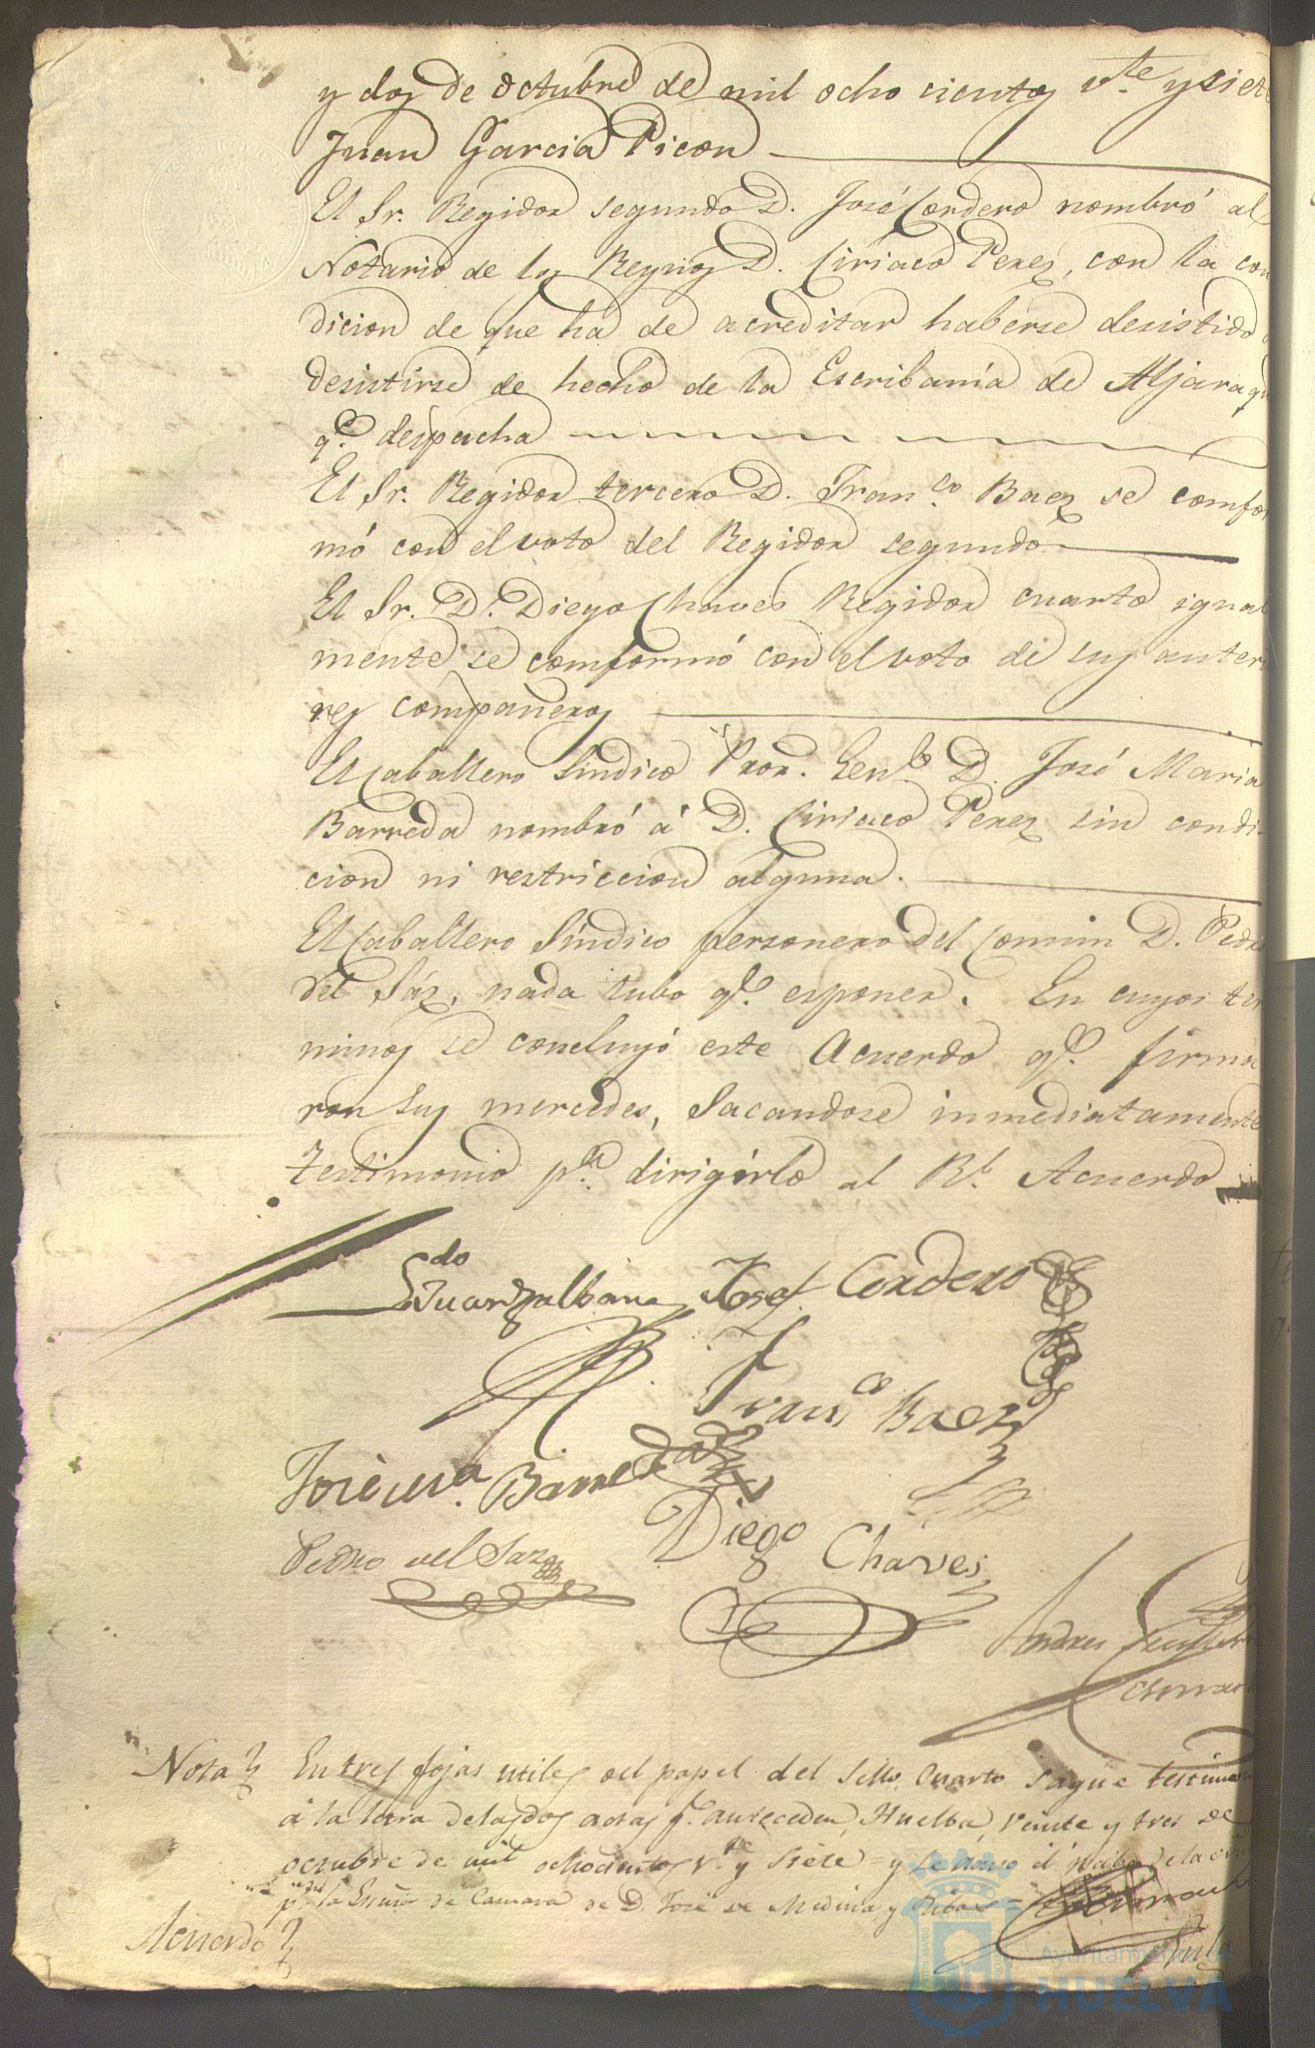 y dos de octubre de mil ocho cientos v.te y siete
Juan Garcia Picon
El Sr. Regidor segundo D. José Cordero nombró al
Notario de los Reynos D. Ciriaco Perez, con la con
dicion de que ha de acreditar haberse desistido
desistirse de hecho de la Escribanía de Aljaraqu
q.e despacha
El Sr. Regidor tercero D. Fran.co Baez se comfor
mó con el voto del Regidor segundo
El Sr. D. Diego Chaves Regidor cuarto igual
mente se comformó con el voto de sus anter
res compañeros
El Caballero Sindico Pror. Gen.l D. José Maria
Barreda nombró á D. Ciriaco Perez sin condi
cion ni restriccion alguna.
El Caballero Síndico personero del Comun D. Pedro
del Sáz, nada tubo q.e esponer. En cuyos ter
minos se concluyó este Acuerdo q.e firma
ron sus mercedes, sacandose inmediatamente
testimonio p.a dirigirlo al R.l Acuerdo
Josef Cordero
Fran.co Baez
José M.a Barreda
Diego Chaves
Pedro del Saz
Andres
Nota En tres fojas utiles del papel del Sello Cuarto saque testimo
á la letra de las dos actas q.e anteceden, Huelba, veinte y tres de
octubre de mil ochocientos v.te y siete = y se
p.r la Escña de Camara de D. José de Medina y Ribas =
Acuerdo
Ayuntamiento
HUELVA